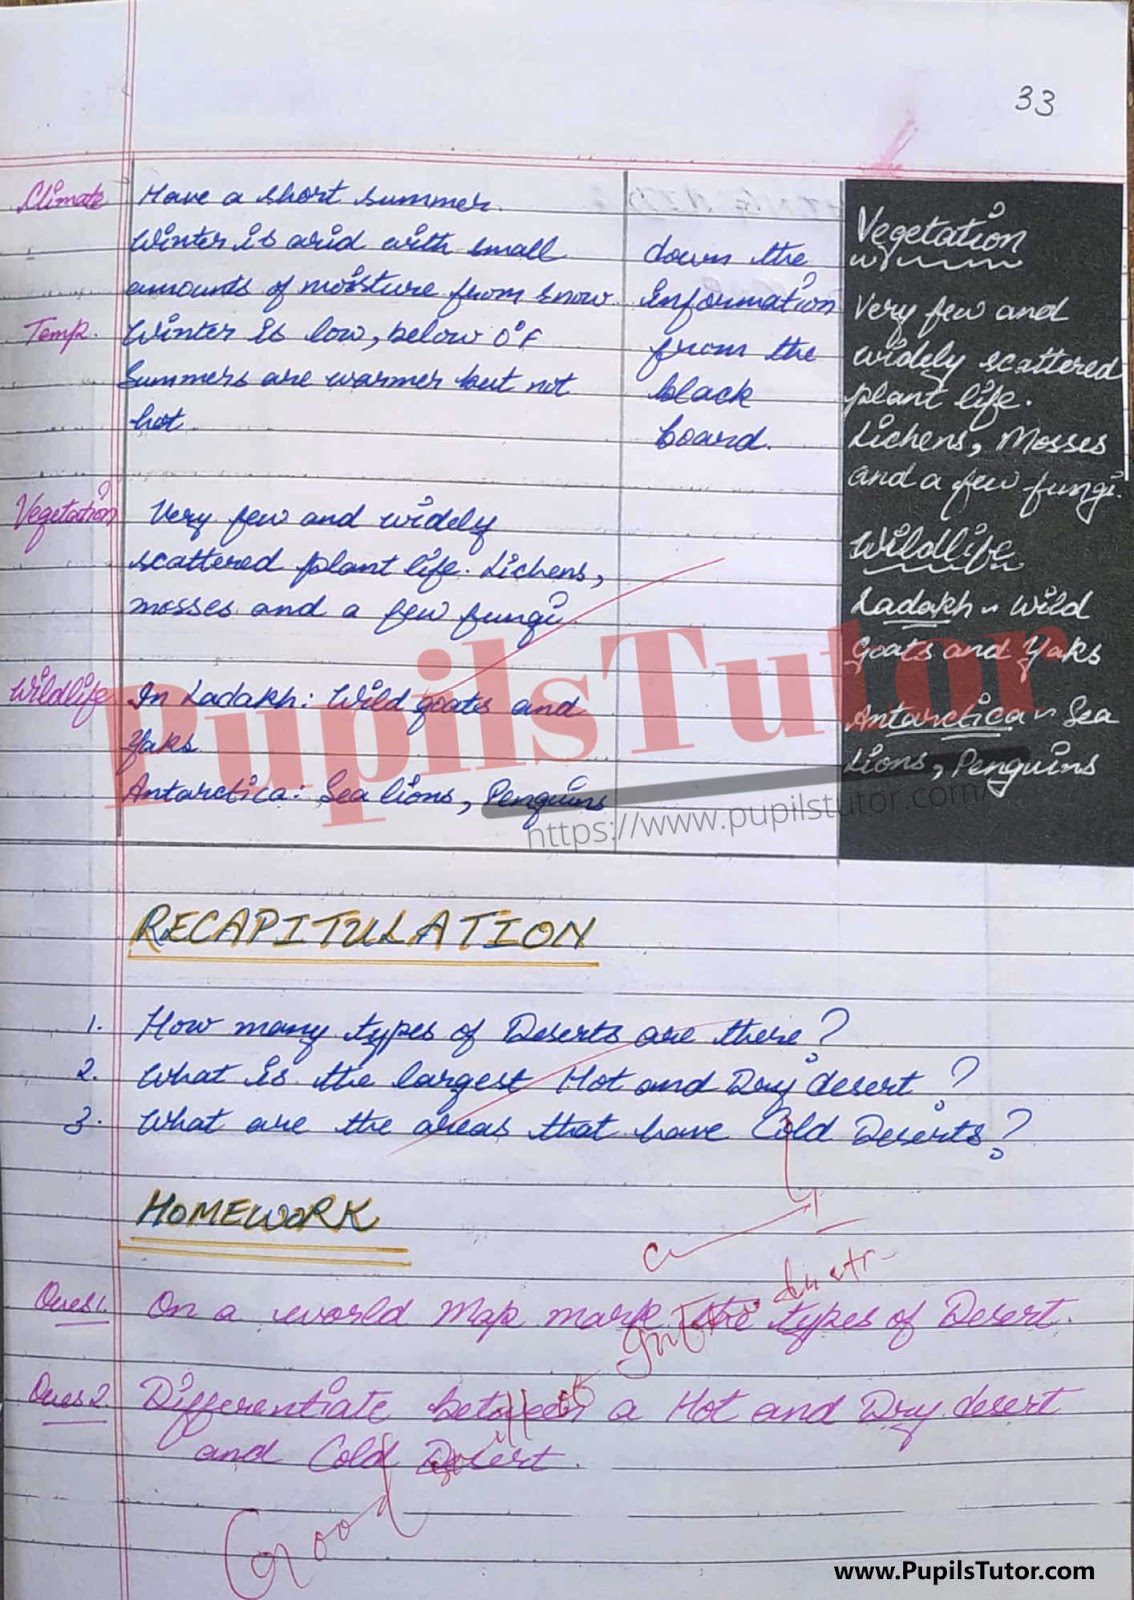 33
Climate
Have a short summer.
Winter is arid with small
amounts of moisture from snow
Temp.
Winter is low, below 0°F
Summers are warmer but not
hot.
Vegetation
Very few and widely
scattered plant life. Lichens,
mosses and a few fungi.
Wildlife
In Ladakh: Wild goats and
Yaks
Antarctica: Sea lions, Penguins
down the
information
from the
black
board.
Vegetation
Very few and
widely scattered
plant life.
Lichens, Mosses
and a few fungi.
Wildlife
Ladakh - Wild
Goats and Yaks
Antarctica - Sea
Lions, Penguins
PupilsTutor
https://www.pupilstutor.com/
RECAPITULATION
1. How many types of Deserts are there?
2. What is the largest Hot and Dry desert?
3. What are the areas that have Cold Deserts?
HOMEWORK
Ques1. On a world Map mark the types of Desert.
Ques2. Differentiate between a Hot and Dry desert
and Cold Desert.
Good
www.PupilsTutor.com